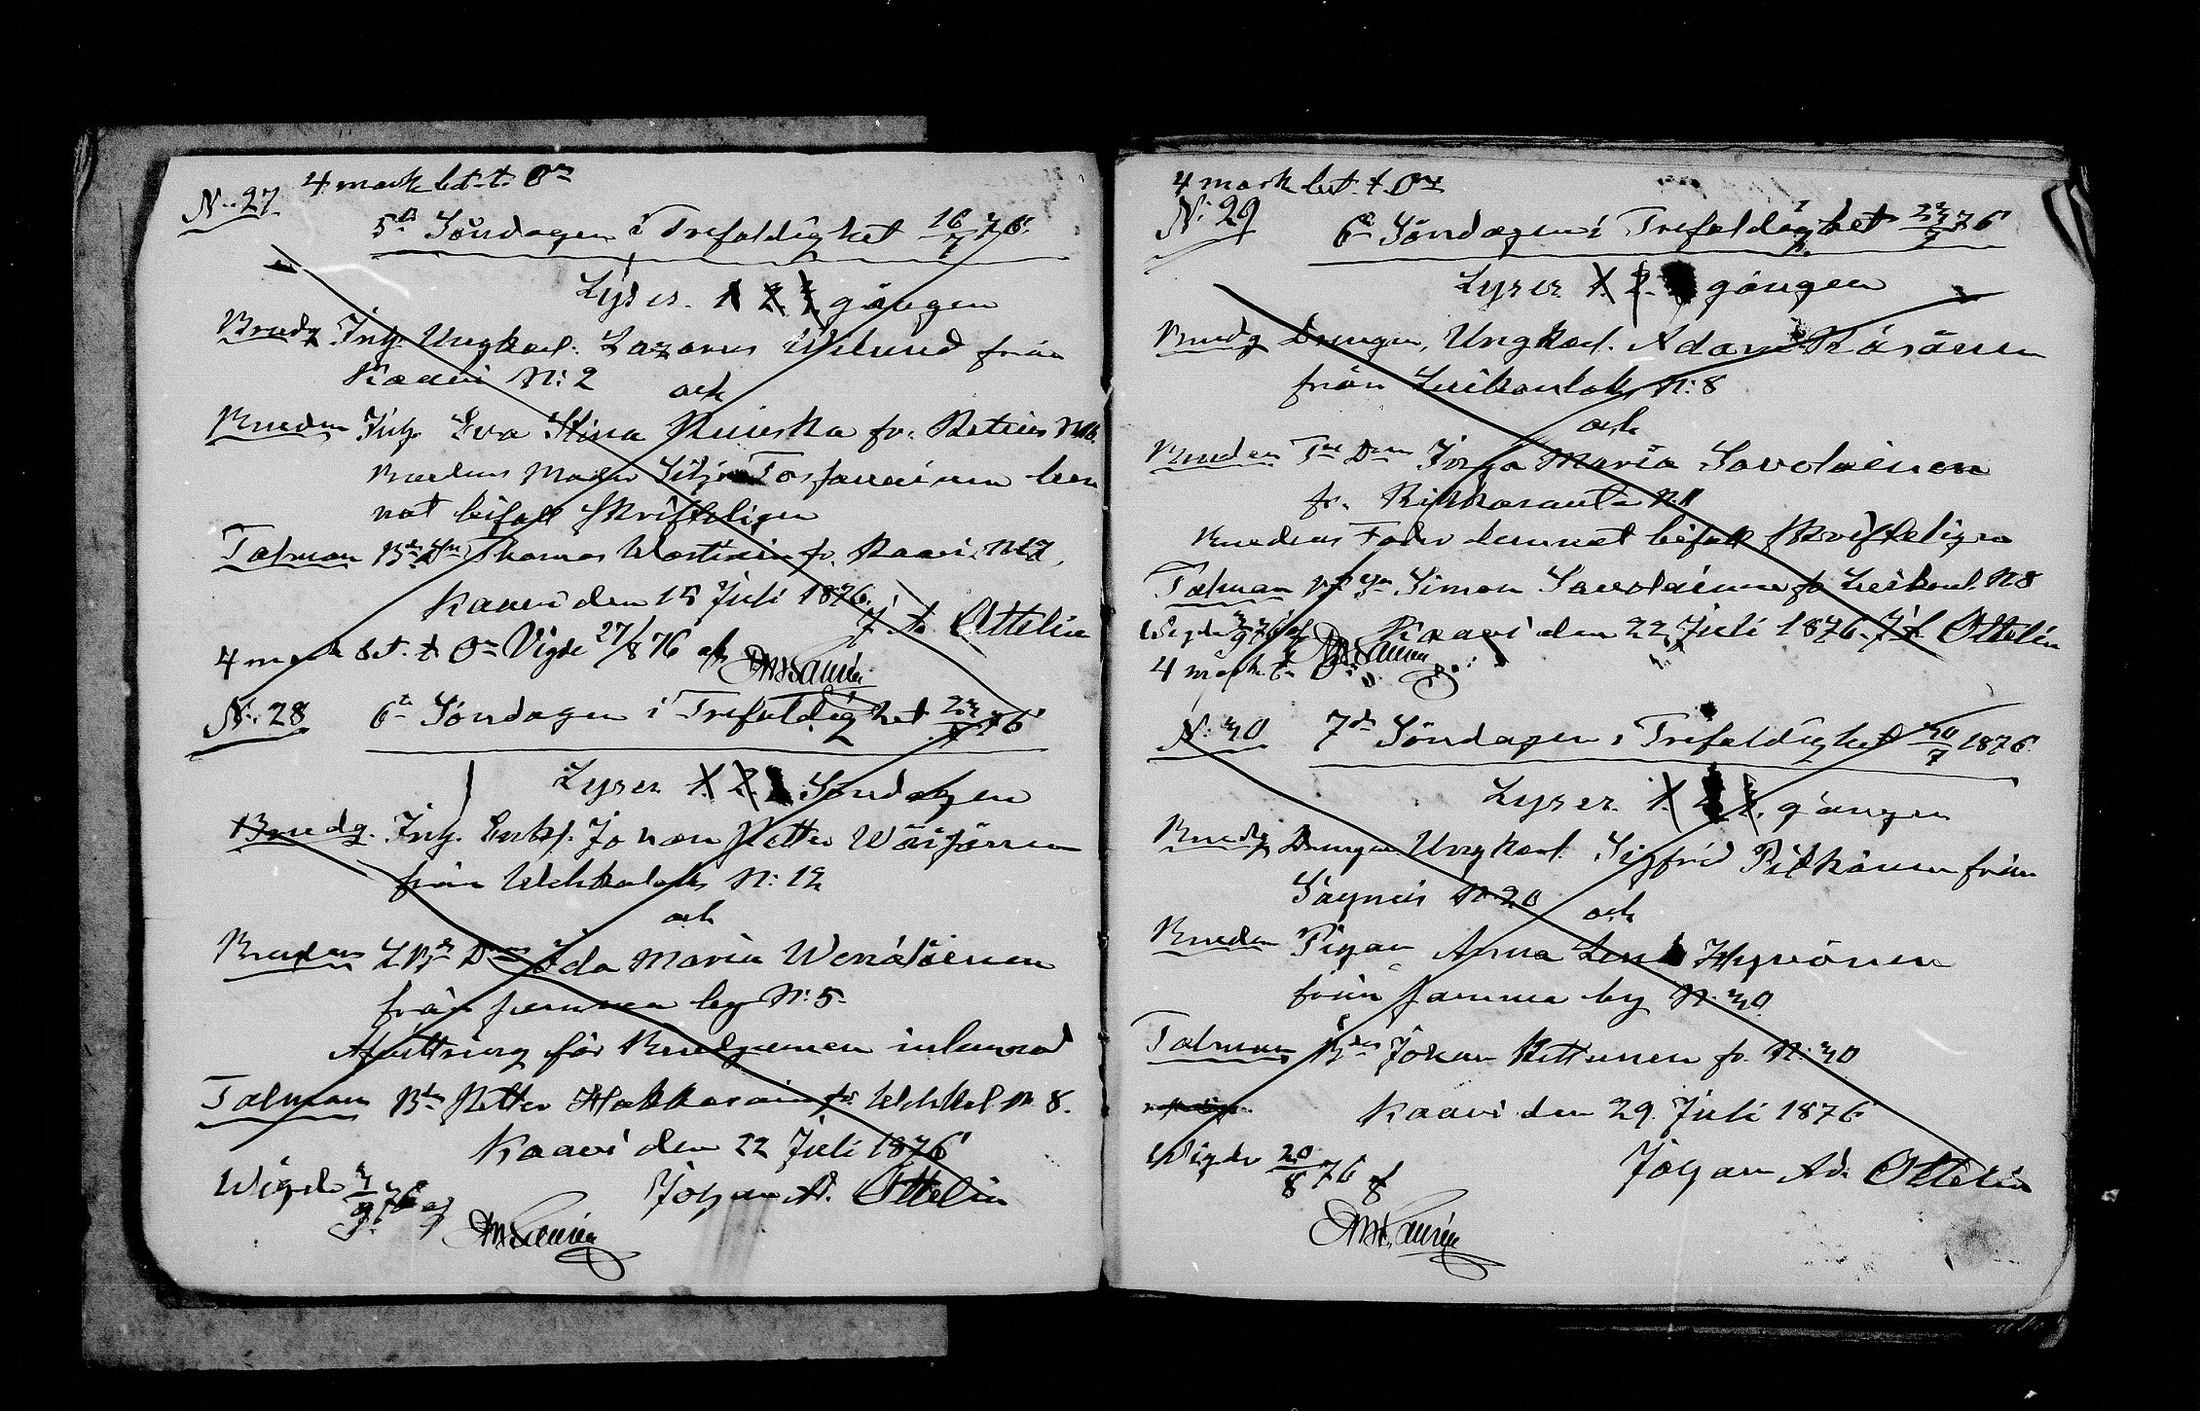 4 mark bet. t. Or
N: 27
5te Söndagen i Trefaldighet 16/7 76.
Lyses. 1 2 3 gången
Brudg Inh. Ungkarl. Lazarus Wilund från
Kaavi N: 2
och
Bruden Inh. Eva Stina Ruuska fr. Retunis N 16.
Brudens Moder Silja lem
nat bifall skrifteligen
Talman Thomas fr. Kaavi N 17.
Kaavi den 15 Juli 1876. J. A. Ottelin
4 mark bet. t. Or Vigde 27/8 76 af
N: 28
6te Söndagen i Trefaldighet 23/7 76
Lyser 1. 2. 3. Söndagen
Brudg. Inh. Enkl. Johan Petter Wäisänen
från Wehkalaks N: 12
och
Bruden Ida Maria Wenäläinen
från samma by N: 5.
Afvittring för Brudgumen inlemnad
Talman Bde Petter Hakkarainen fr Wehkal N 8.
Kaavi den 22 Juli 1876
Wigde 3/9 76 af
Johan Ad. Ottelin
4 mark bet. t. Or
N: 29
6te Söndagen i Trefaldighet 23/7 76
Lyser 1. 2. gången
Brudg Drengen, Ungkarl. Adam Räsänen
från Luikonlaks N: 8
och
Bruden Inga Maria Savolainen
fr. Rikkaranta N: 11
Brudens Fader lemnat bifall skrifteligen
Talman Simon Savolainen fr Luikonl. N 8
Wigde 3/9 76 af Kaavi den 22 Juli 1876. J A Ottelin
4 mark t. Or
N: 30
7de Söndagen i Trefaldighet 30/7 1876
Lyser 1. 2 3. gången
Brudg Drengen Ungkarl. Sigfrid Pitkänen från
Säyneis N 20
och
Bruden Pigan Anna Lena Hyvönen
från samma by N. 30
Talman Bde Johan Kettunen fr. N: 30
Kaavi den 29. Juli 1876
Wigde 20/8 76 af
Johan Ad. Ottelin